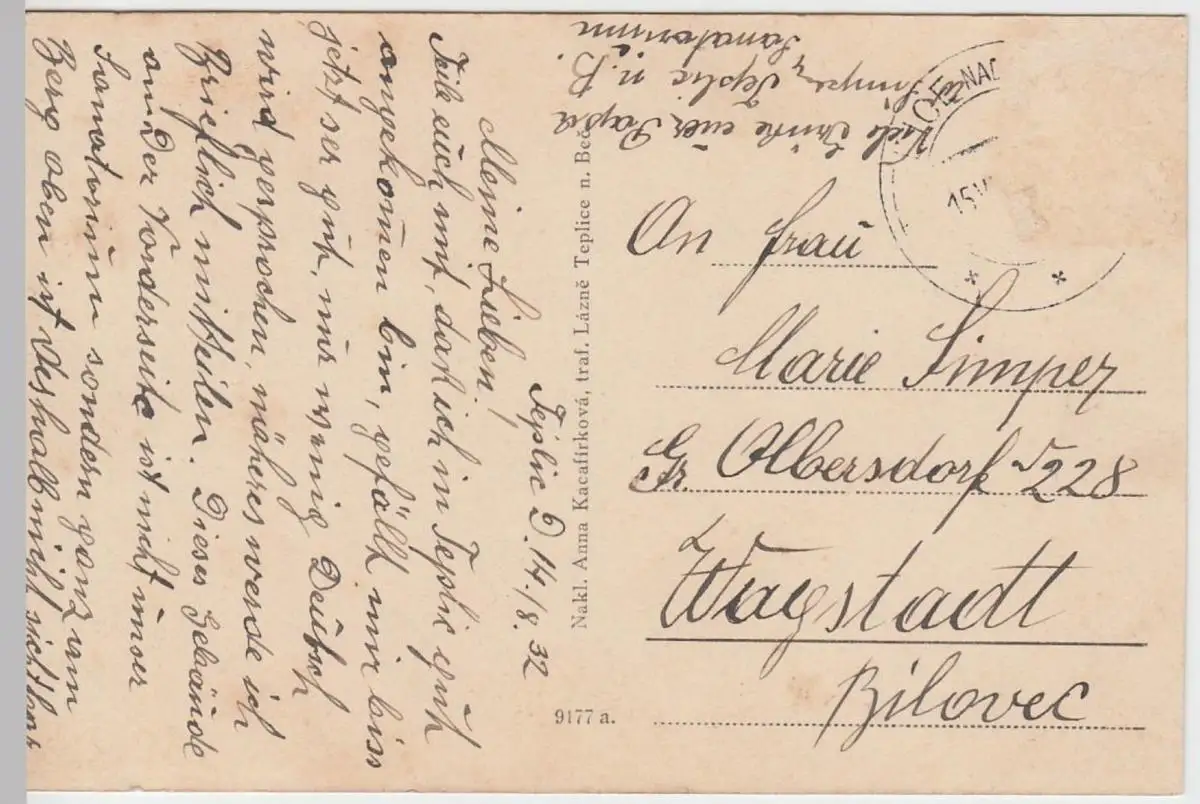 Teplic D. 14./8. 32
Meine Lieben!
Teile euch mit, daß ich in Teplic gut
angekomen bin, gefällt mir biss
jetzt ser gut, nur wenig Deutsch
wird gesprochen, näheres werde ich
Brieflich mitteilen. Dieses Gebäude
an der Vorderseite ist nicht unser
Sanatorium sondern ganz am
Berg oben ist deshalb nicht sichtbar
Viele Grüße euer Papa
Simper, Teplic n. B.
Sanatorium
Nakl. Anna Kacafírková, traf. Lázně Teplice n. Beč.
9177 a.
CE NAD
15.V
An Frau
Marie Simper
Gr Olbersdorf 228
Wagstadt
Bilovec